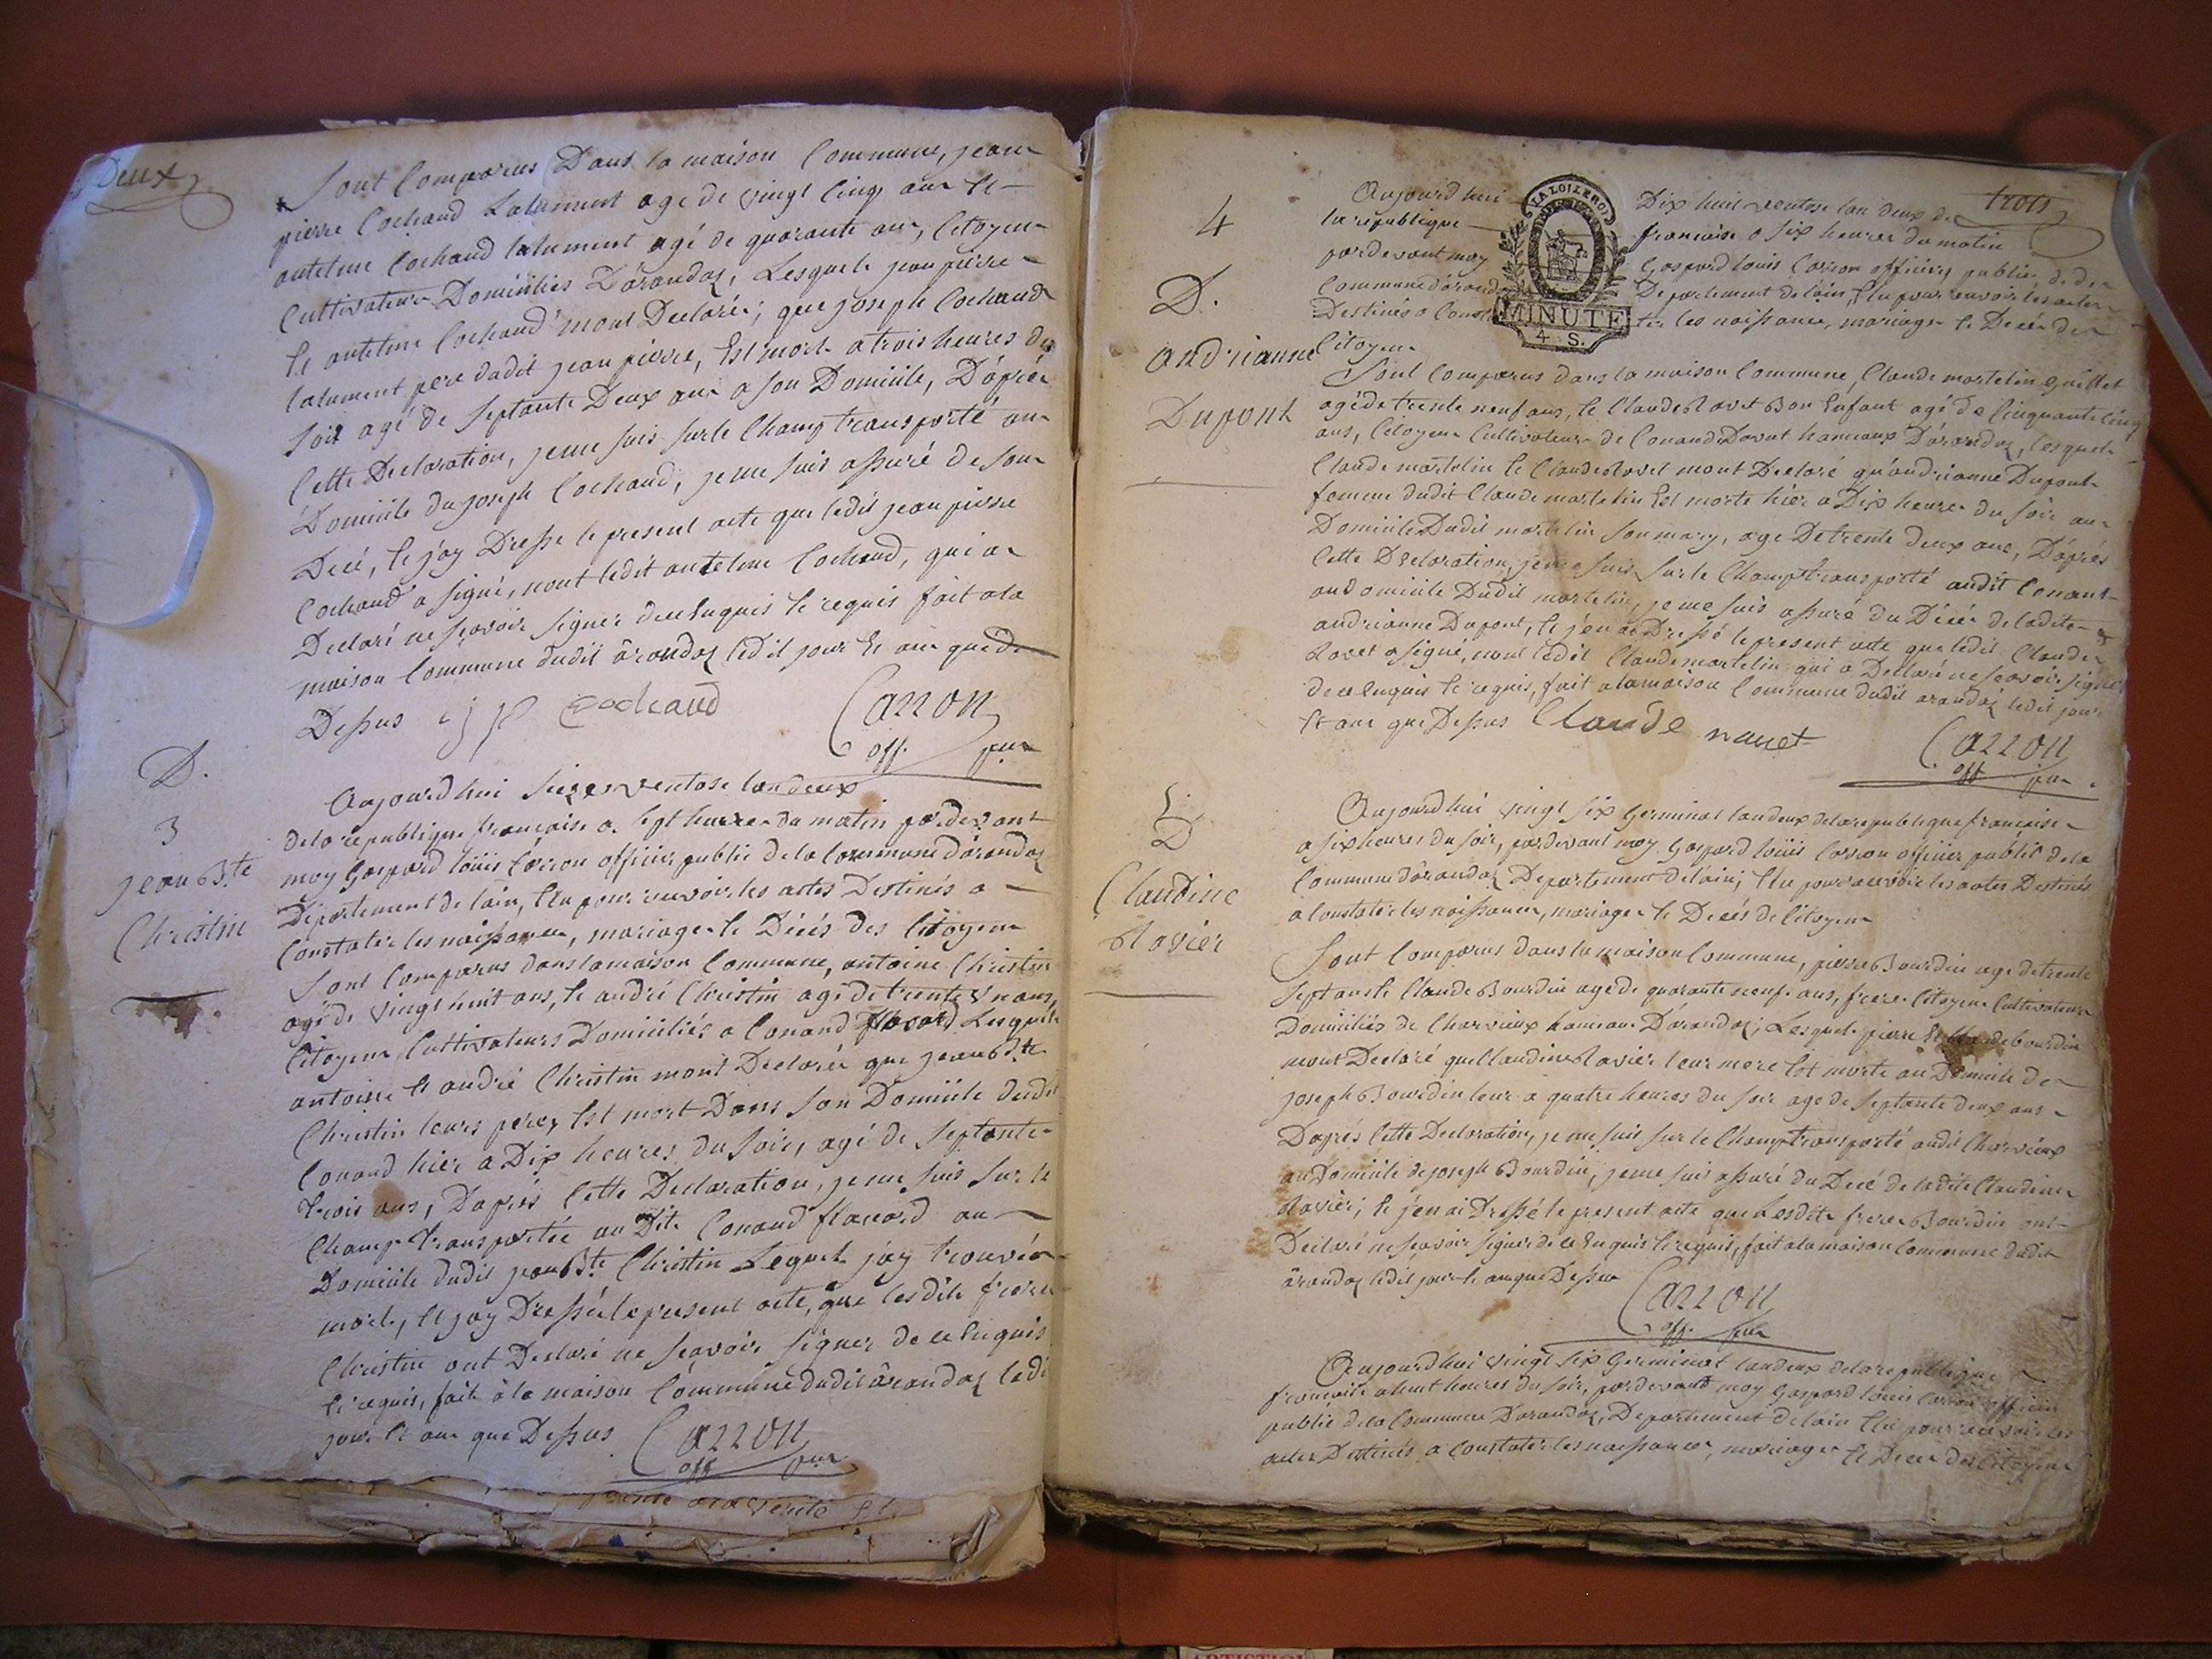 Deux
Sont Comparus Dans la maison Commune, jean
pierre Cochaud Lalument agé de vingt cinq ans et
antelme Cochaud lalument agé de quarante ans, Citoyens
Cultivateurs Domiciliés D'arandaz, Lesquels jean pierre
et antelme Cochaud mont Declarés, que joseph Cochaud
lalument pere dudit jean pierre, Est mort a trois heures du
soir agé de septante Deux ans a son Domicile, D'après
Cette Declaration, je me suis sur le Champ transporté au
Domicile du joseph Cochaud, je me suis assuré de son
Decé, et j'ay Dressé le present acte que ledit jean pierre
Cochaud a signé, nont ledit antelme Cochaud, qui a
Declaré ne sçavoir signer de ce Enquis et requis fait a la
maison Commune dudit arandaz ledit jour et an que de
Dessus j p Cochaud Carron
off. pur
D.
3
jean B.te
Christin
Aujourd'hui seize ventose lan deux
de la republique francaise a sept heures du matin par devant
moy Gaspard loüis Carron officier public de la Commune d'arandaz
Departement de lain, Elu pour recevoir les actes Destinés a
Constater les naissances, mariages et Décés des Citoyens
Sont Comparus dans la maison Commune, antoine Christin
agé de vingt huit ans, et andré Christin agé de trente un ans,
Citoyens Cultivateurs Domiciliés a Conand flavard Lesquels
antoine et andré Christin mont Declarés que jean B.te
Christin leurs peres Est mort Dans son Domicile dudit
Conand hier a Dix heures du soir, agé de septante
trois ans, D'après Cette Declaration, je me suis sur le
Champ transportée au Dit Conand flavard au
Domicile dudit jean B.te Christin Lequel j'ay trouvée
mort, et j'ay Dressée le present acte, que lesdits freres
Christin ont Declaré ne sçavoir signer de ce Enquis
et requis, fait à la maison Commune dudit arandaz ledi
jour et an que Dessus Carron
off pur
a la verité
trois
4
D.
andrianne
Dupont
Aujourd'hui Dix huit ventose lan deux de
la republique francaise a six heures du matin
par devant moy Gaspard louis Carron officier public de
LA LOI LE ROI
Commune d'arand Departement de lain, Elu pour recevoir les actes
Destinés a Const ter les naissance, mariages et Decés de
MINUTE
4 S.
Citoyens
Sont Comparus dans la maison Commune, Claude martelin Guillet
agé de trente neuf ans, et Claude Ravet Bon Enfant agé de Cinquante Cinq
ans, Citoyens Cultivateurs de Conand Dovat hameaux D'arandaz, lesquels
Claude martelin et Claude Ravet mont Declaré qu'andrianne Dupont
femme dudit Claude martelin Est morte hier a Dix heures du soir au
Domicile Dudit martelin son mary, age De trente deux ans, D'après
Cette Declaration, je me suis sur le Champ transporté audit Conant
au domicile Dudit martelin, je me suis assuré du Décés de ladite
andrianne Dupont, et j'en ai Dressé le present acte que ledit Claude
Ravet a signé, nont ledit Claude martelin qui a Declaré ne sçavoir signer
de ce Enquis et requis, fait a la maison Commune dudit arandaz ledit jour
et an que Dessus Claude ravet Carron
off pur
5.
D
Claudine
Ravier
Aujourd'hui vingt six Germinal lan deux de la republique francaise
a six heures du soir, par devant moy Gaspard loüis Carron officier public de la
Commune d'arandaz Departement de lain, Elu pour recevoir les actes Destinés
a Constater les naissances, mariages et Decés de Citoyens
Sont Comparus dans la maison Commune, pierre Bourdin age de trente
sept ans et Claude Bourdin age de quarante neuf ans, freres Citoyens Cultivateurs
Domiciliés de Charvieux hameau Darandaz, Lesquels pierre et Claude bourdin
mont Declaré que Claudine Ravier leur mere Est morte au Domicile de
joseph Bourdin leur a quatre heures du soir age de septante deux ans
D'aprés Cette Declaration, je me suis sur le Champ transporté audit Charvieux
au Domicile de joseph Bourdin, je me suis assuré du Decé de ladite Claudine
Ravier, et j'en ai Dressé le present acte que Lesdits freres Bourdin ont
Declaré ne sçavoir signer de ce Enquis et requis, fait a la maison Commune dudit
arandaz ledit jour et an que Dessus
Carron
off. pur
Aujourd'hui vingt six Germinal lan deux de la republique
francaise a huit heures du soir, par devant moy Gaspard louis Carron officier
public de la Commune Darandaz, Departement de lain Elu pour recevoir les
actes Destinés a Constater les naissances, mariages et Decés des Citoyens